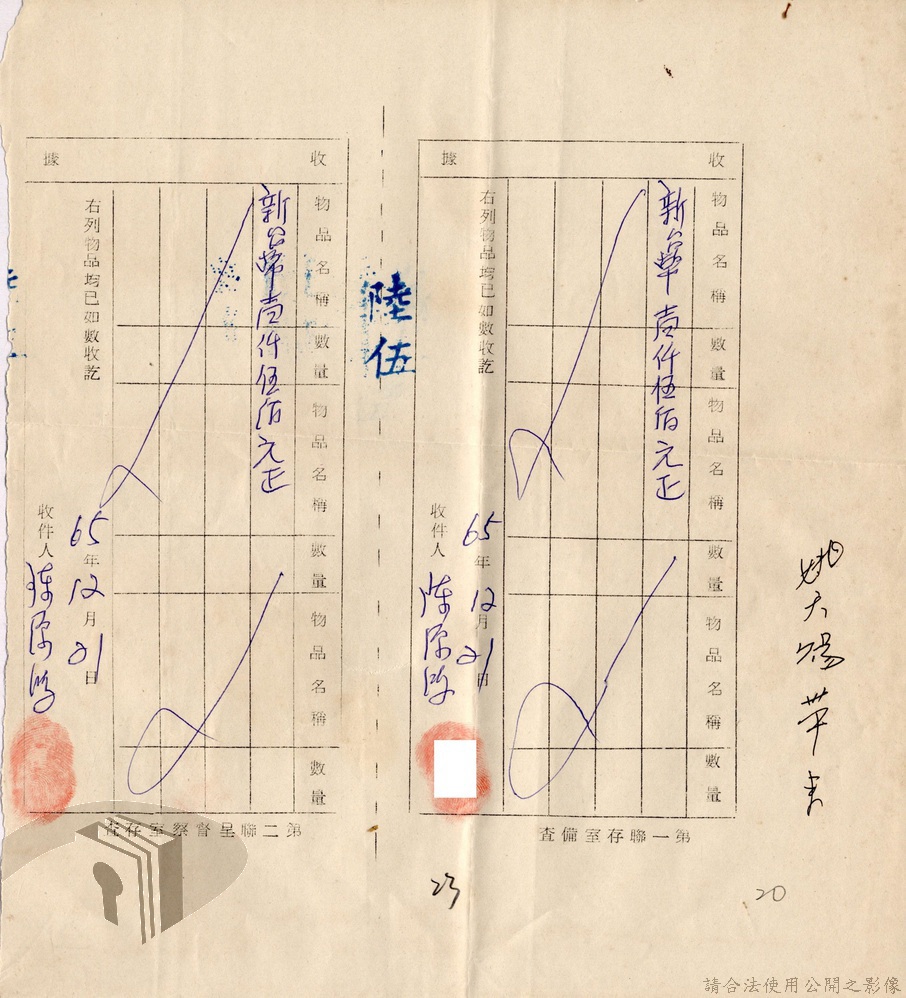 收據
物品名稱
數量
物品名稱
數量
物品名稱
數量
新台幣壹仟伍佰元正
右列物品均已如數收訖
65年12月21日
收件人 陳
第一聯存室備查
陸伍
收據
物品名稱
數量
物品名稱
數量
物品名稱
數量
新台幣壹仟伍佰元正
右列物品均已如數收訖
65年12月21日
收件人 陳
第二聯呈督察室存查
23
20
請合法使用公開之影像